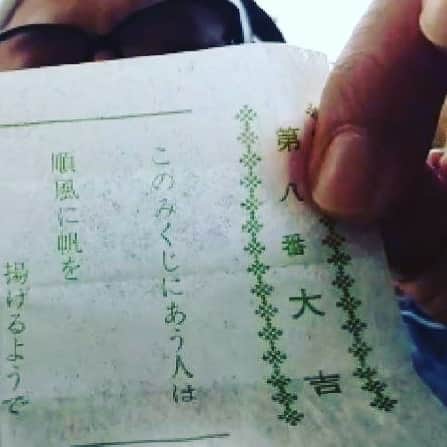 第八番大吉
このみくじにあう人は
順風に帆を
揚げるようで